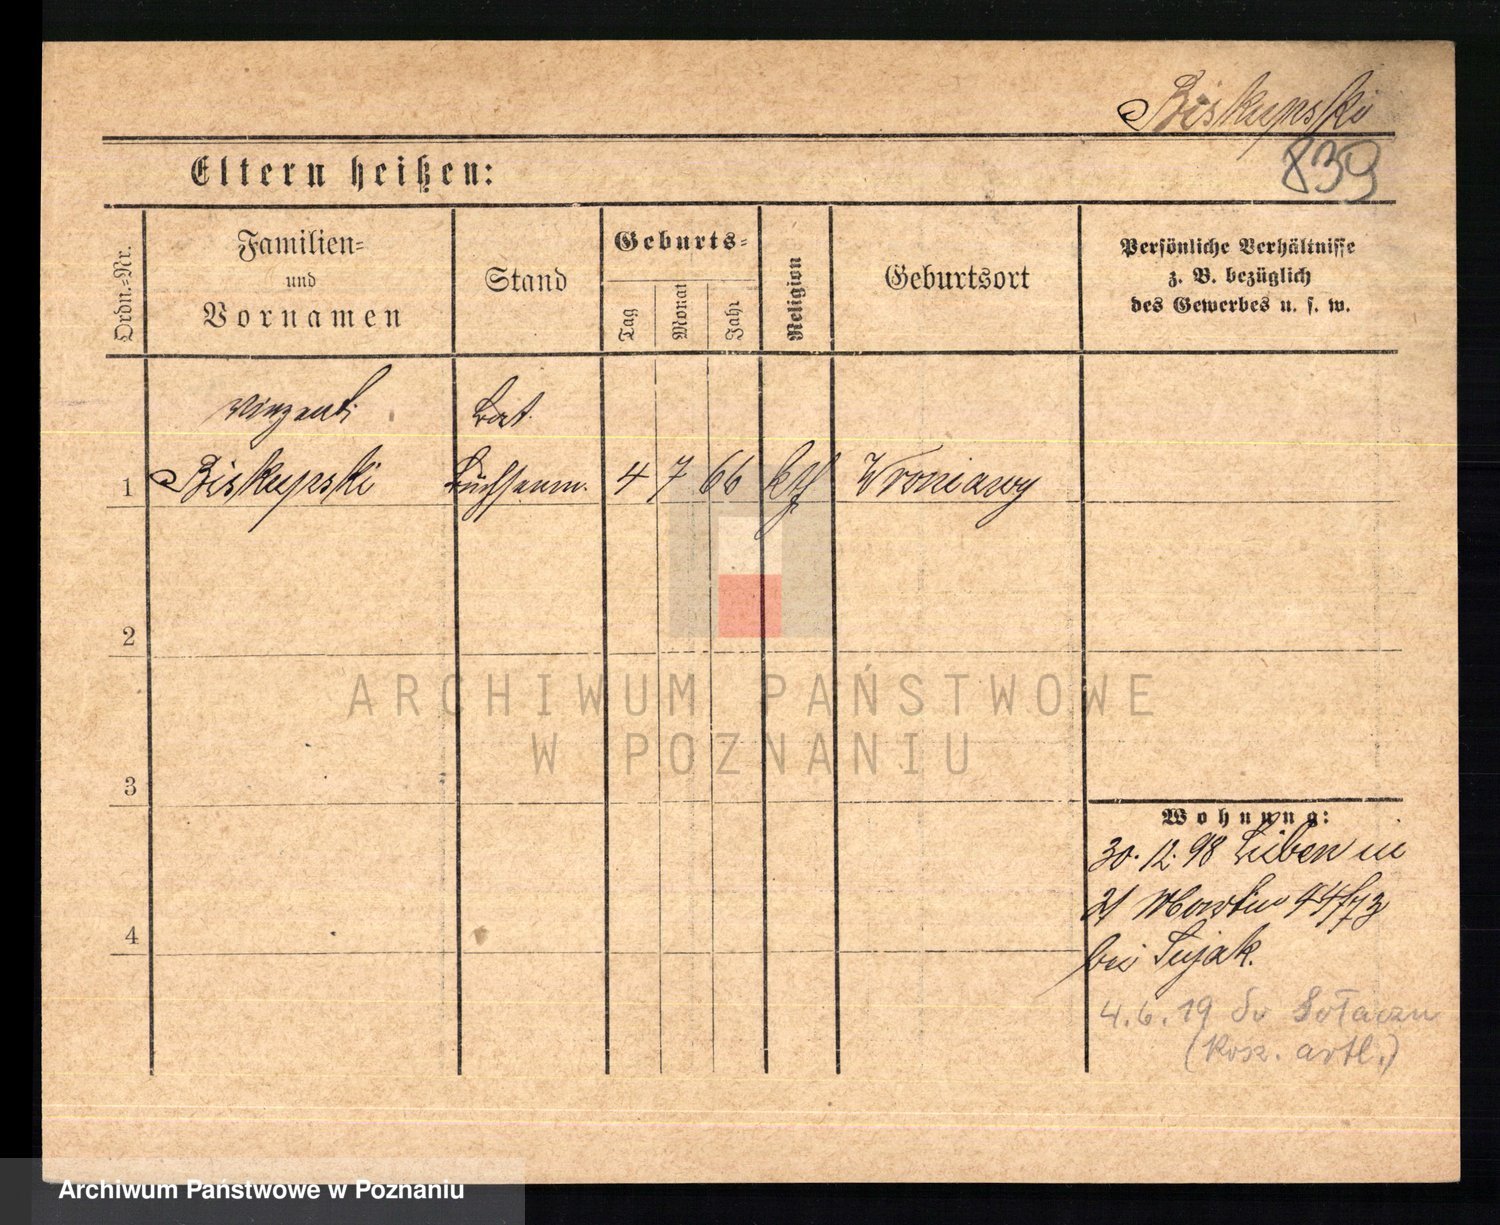 Biskupski
839
Eltern heißen:
Ordn.-Nr.
Familien-
und
Vornamen
Stand
Geburts-
Tag
Monat
Jahr
Religion
Geburtsort
Persönliche Verhältnisse
z. B. bezüglich
des Gewerbes u. s. w.
Vinzent
Biskupski
Bat.
Büchsenm.
1
4 7 66
kth
Wroniawy
2
ARCHIWUM PAŃSTWOWE
W POZNANIU
3
Wohnung:
30. 12. 98
Martin 44/73
bei Sujak.
4
4.6.19 Sołaczu
(kosz. artl.)
Archiwum Państwowe w Poznaniu